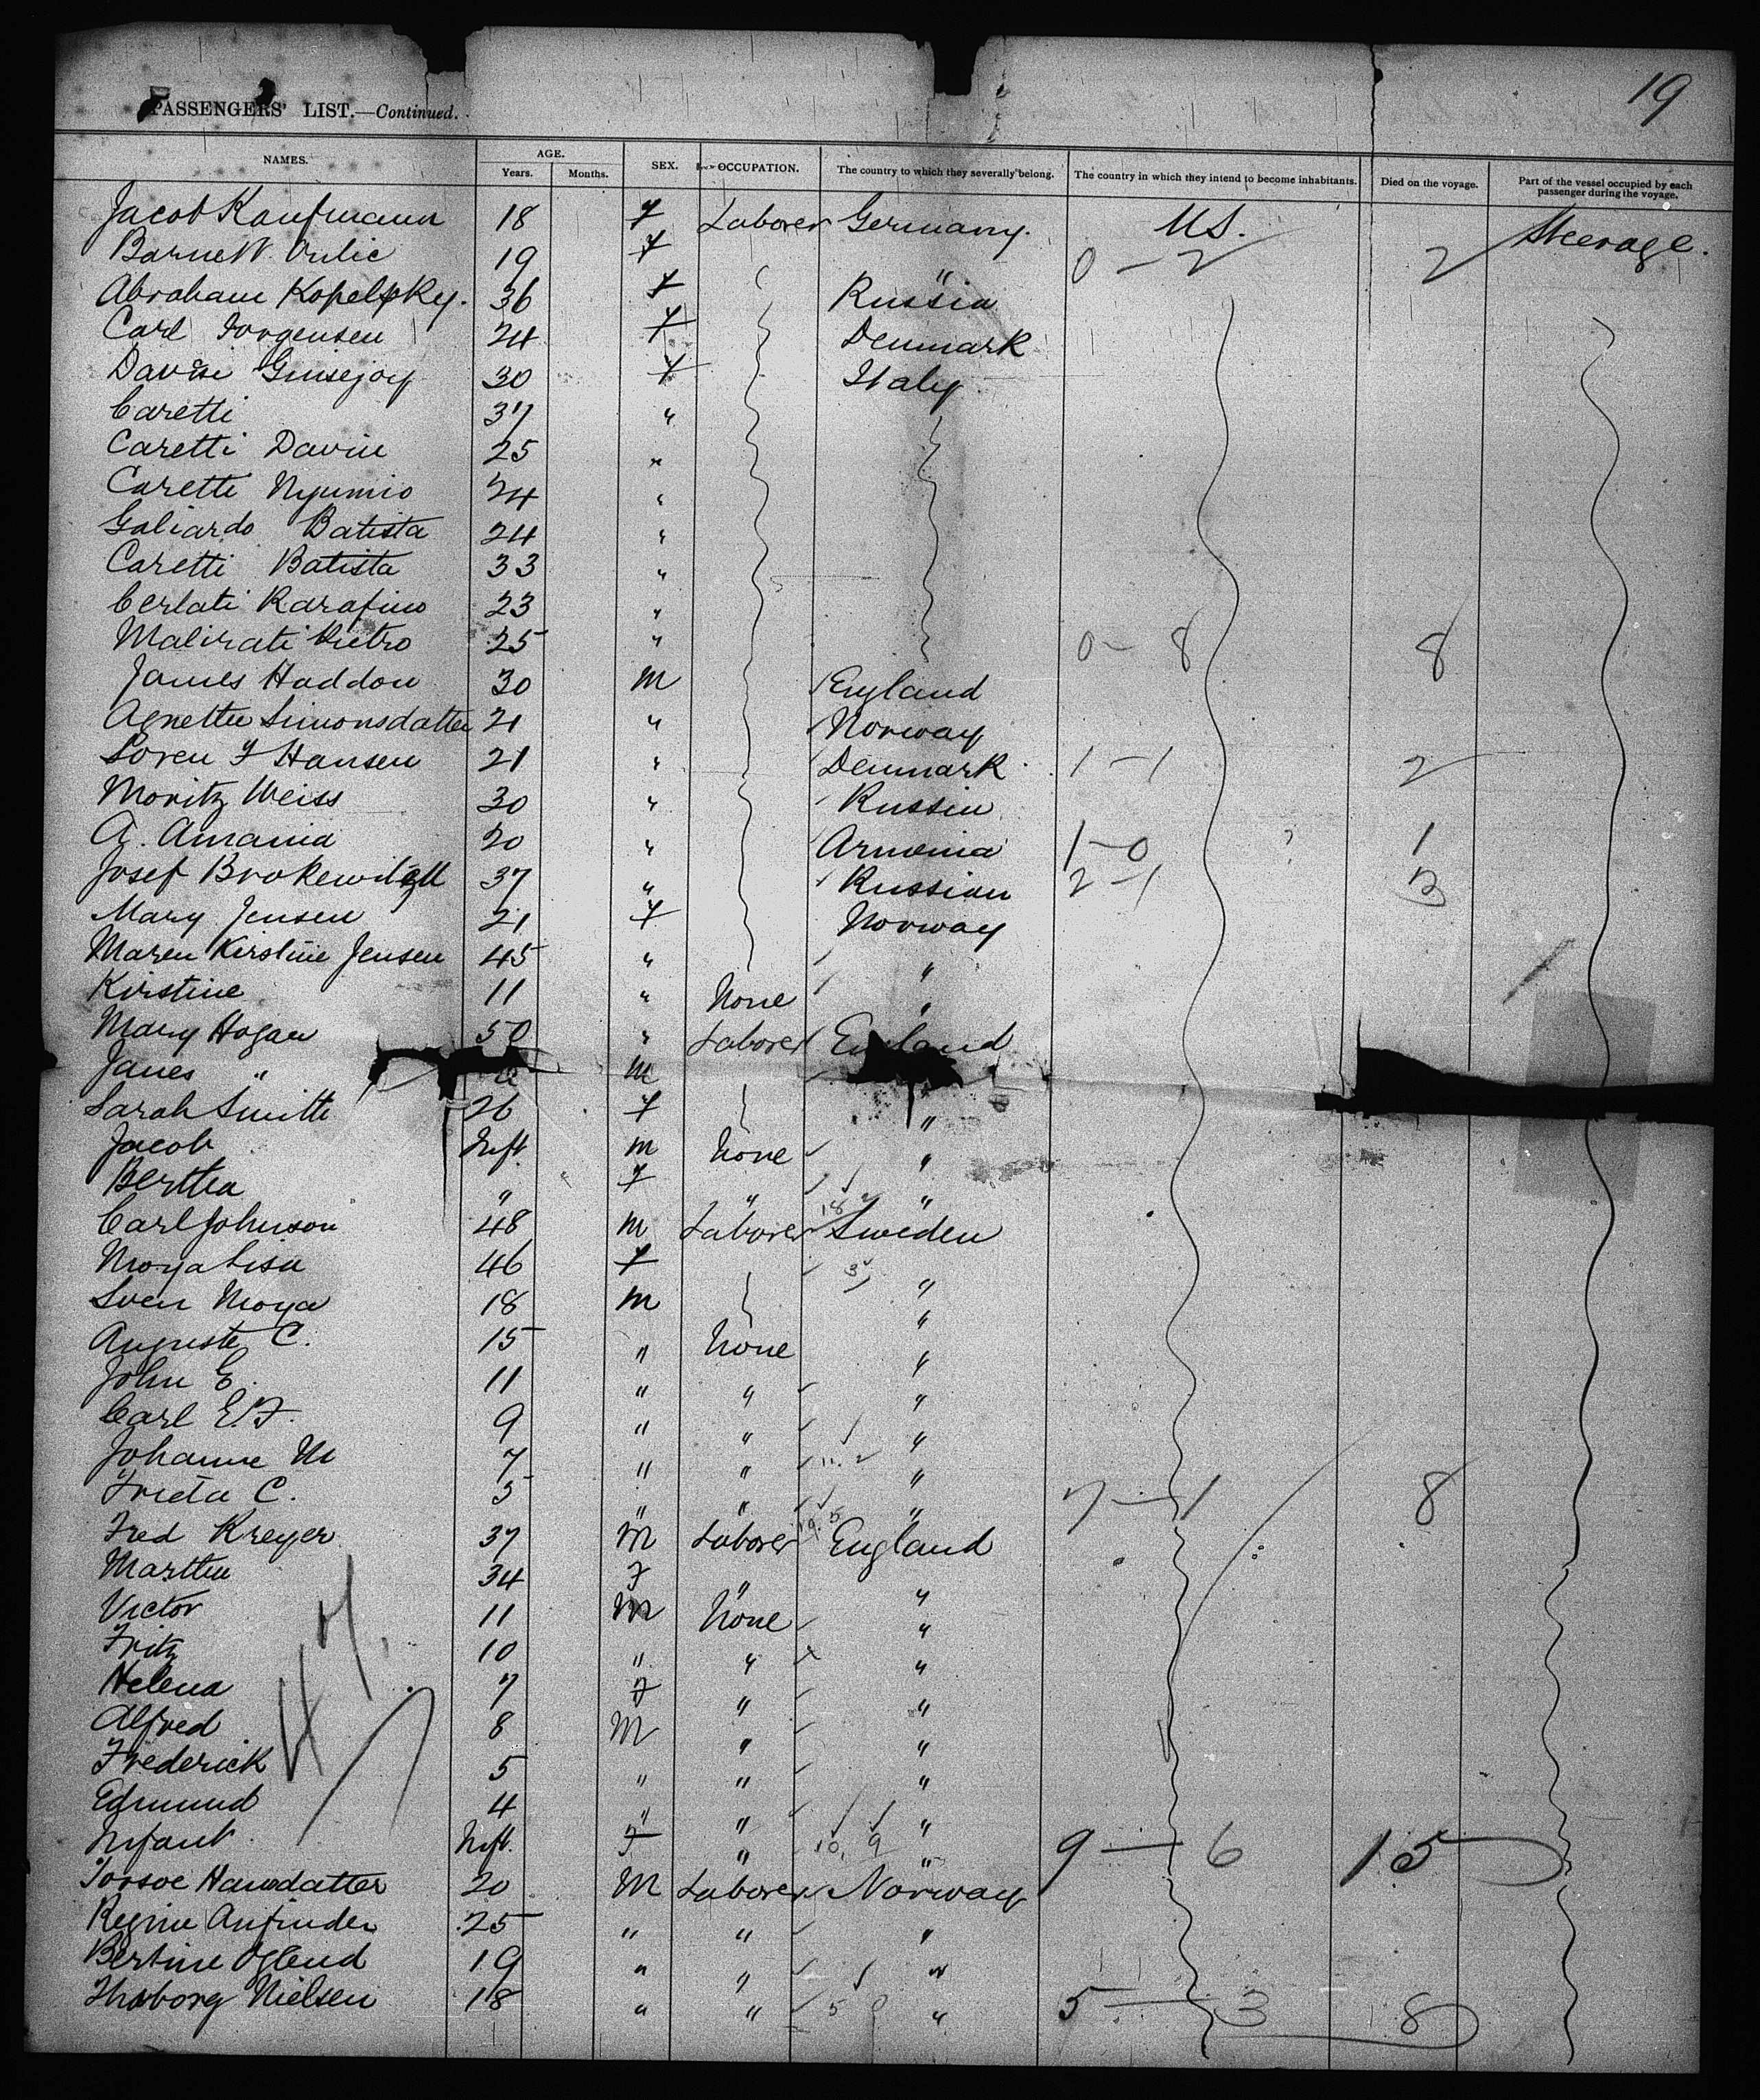 19
PASSENGERS' LIST.—Continued.
NAMES. AGE. SEX. OCCUPATION. The country to which they severally belong. The country in which they intend to become inhabitants. Died on the voyage. Part of the vessel occupied by each passenger during the voyage.
Years. Months.
Jacob Kaufmann 18 f Laborer Germany. U.S. Steerage.
Barnett 19 f " 0 - 2 2
Abraham Kopelpky. 36 f Russia
Carl Jorgensen 24 f Denmark
30 f Italy
Caretti 37 "
Caretti Davin 25 "
Caretti 24 "
Galiardo Batista 24 "
Caretti Batista 33 "
Cerlati Rarafino 23 "
Malirati Pietro 25 " 0 - 8 8
James Haddon 30 M England
Agnethe Simonsdatter 21 " Norway
Soren F Hansen 21 " Denmark 1 - 1 2
Moritz Weiss 30 " Russia
A. Amania 20 " Armenia 1 - 0 1
Josef 37 " Russian 2 - 1 3
Mary Jensen 21 f Norway
Maren Kirstine Jensen 45 " "
Kirstine 11 " None "
Mary Hogan 50 " Laborer England
James " M
Sarah Smith 26 f "
Jacob Inft. m None "
Bertha " f " "
Carl Johnson 48 m Laborer 18 Sweden
Moya Lisa 46 f 3 "
Sven Moya 18 m "
Auguste C. 15 " None "
John E. 11 " " "
Carl E.F. 9 " " "
Johanne M 7 " " 11. 2 "
Frieta C. 5 " " " 7 - 1 8
Fred Kreyer 37 M Laborer 19. 5 England
Martha 34 F " "
Victor 11 M None "
Fritz 10 " " "
Helena 7 F " "
Alfred 8 M " "
Frederick 5 " " "
Edmund 4 " " "
Infant Inft. F " 10, 9 " 9 - 6 15
47.
Hansdatter 20 M Laborer Norway
Regine 25 " " "
Bertine Ogland 19 " " "
Nielsen 18 " " 5 " 5 - 3 8